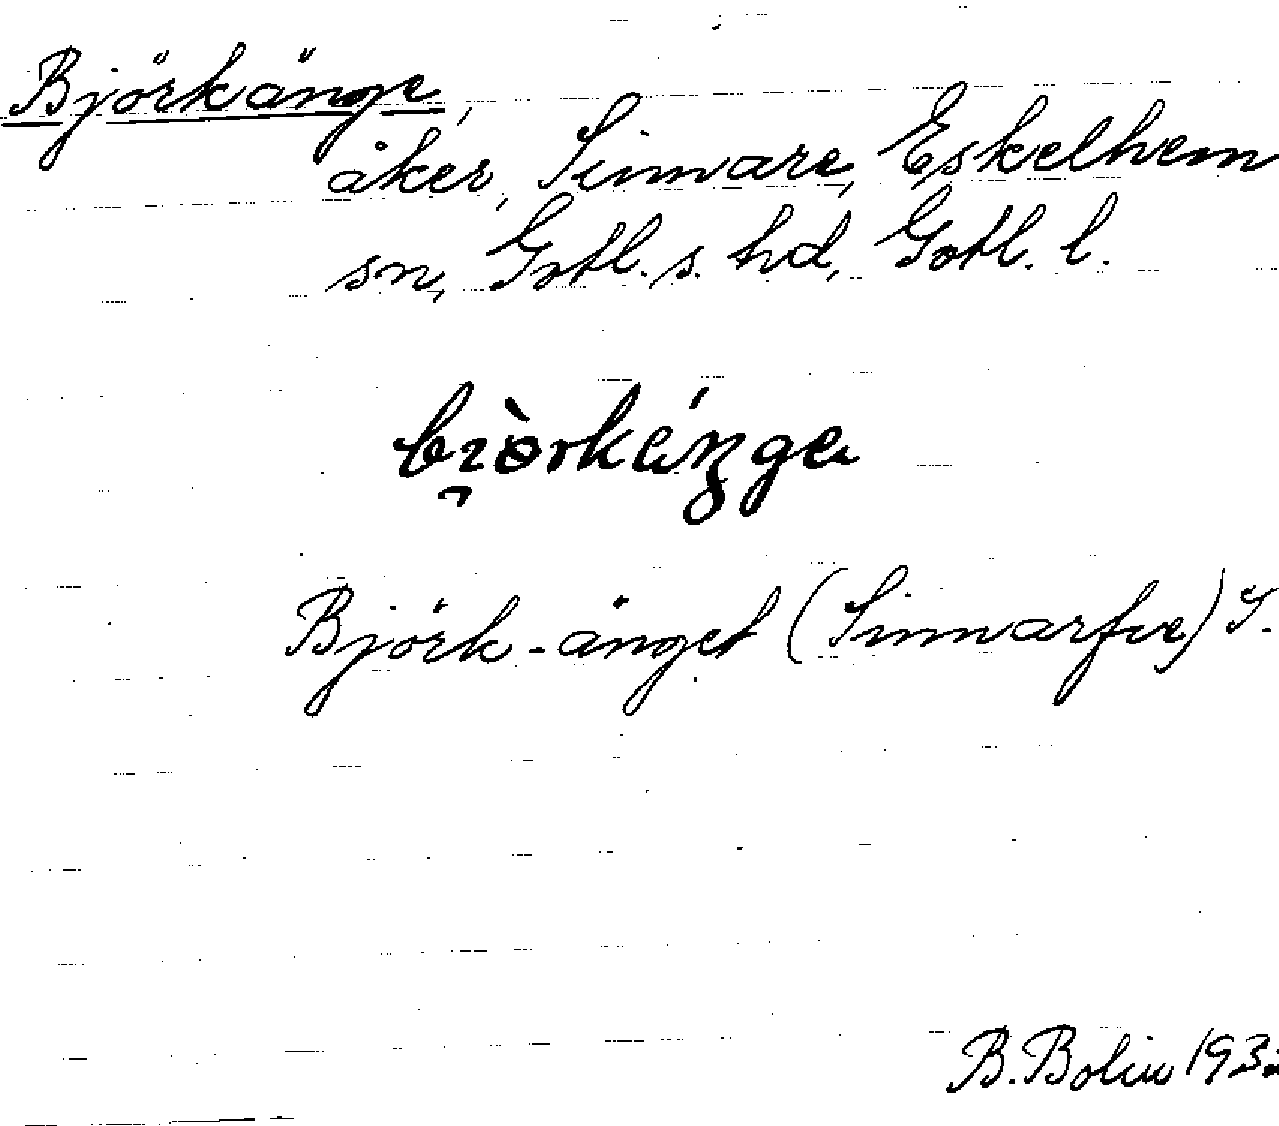 Björkänge,
åker, Sinnare, Eskelhem
sn, Gotl. s. hd, Gotl. l.
Björk-änget (Sinnarfve) S.
B. Bolin 193